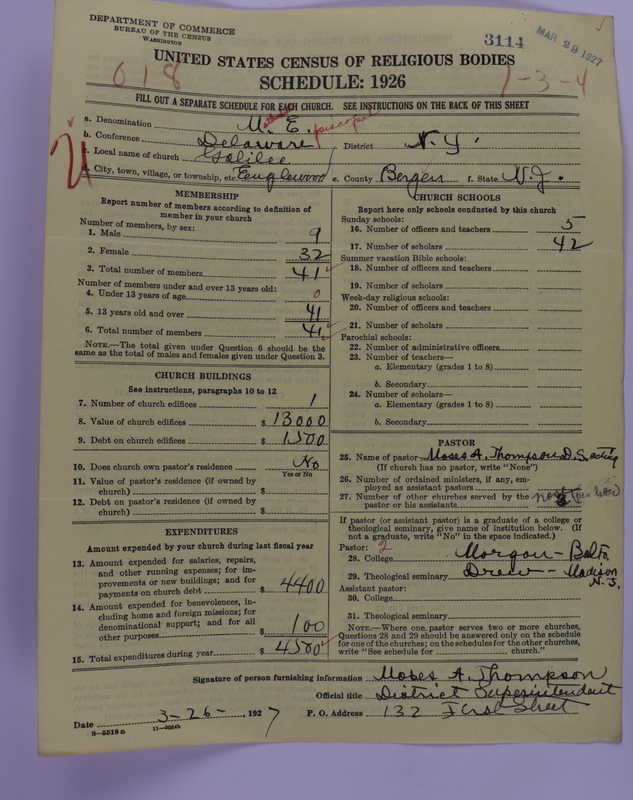 DEPARTMENT OF COMMERCE
BUREAU OF THE CENSUS
WASHINGTON
3114
MAR 29 1927
UNITED STATES CENSUS OF RELIGIOUS BODIES
018
SCHEDULE: 1926
1-3-4
FILL OUT A SEPARATE SCHEDULE FOR EACH CHURCH. SEE INSTRUCTIONS ON THE BACK OF THIS SHEET
a. Denomination M. E.
b. Conference Delaware District N. Y.
c. Local name of church Galilee
d. City, town, village, or township, etc. Englewood e. County Bergen f. State N. J.
MEMBERSHIP
Report number of members according to definition of
member in your church
Number of members, by sex:
1. Male 9
2. Female 32
3. Total number of members 41
Number of members under and over 13 years old:
4. Under 13 years of age 0
5. 13 years old and over 41
6. Total number of members 41
NOTE.—The total given under Question 6 should be the
same as the total of males and females given under Question 3.
CHURCH BUILDINGS
See instructions, paragraphs 10 to 12
7. Number of church edifices 1
8. Value of church edifices $ 13000
9. Debt on church edifices $ 1500
10. Does church own pastor's residence No
Yes or No
11. Value of pastor's residence (if owned by
church) $
12. Debt on pastor's residence (if owned by
church) $
EXPENDITURES
Amount expended by your church during last fiscal year
13. Amount expended for salaries, repairs,
and other running expenses; for im-
provements or new buildings; and for
payments on church debt $ 4400
14. Amount expended for benevolences, in-
cluding home and foreign missions; for
denominational support; and for all
other purposes $ 100
15. Total expenditures during year $ 4500
CHURCH SCHOOLS
Report here only schools conducted by this church
Sunday schools:
16. Number of officers and teachers 5
17. Number of scholars 42
Summer vacation Bible schools:
18. Number of officers and teachers
19. Number of scholars
Week-day religious schools:
20. Number of officers and teachers
21. Number of scholars
Parochial schools:
22. Number of administrative officers
23. Number of teachers—
a. Elementary (grades 1 to 8)
b. Secondary
24. Number of scholars—
a. Elementary (grades 1 to 8)
b. Secondary
PASTOR
25. Name of pastor Moses A. Thompson D. S. acting
(If church has no pastor, write "None")
26. Number of ordained ministers, if any, em-
ployed as assistant pastors
27. Number of other churches served by the
pastor or his assistants
If pastor (or assistant pastor) is a graduate of a college or
theological seminary, give name of institution below. (If
not a graduate, write "No" in the space indicated.)
Pastor: 2
28. College Morgan - Balto.
29. Theological seminary Drew - Madison N. J.
Assistant pastor:
30. College
31. Theological seminary
NOTE.—Where one pastor serves two or more churches,
Questions 28 and 29 should be answered only on the schedule
for one of the churches; on the schedules for the other churches,
write "See schedule for church."
Signature of person furnishing information Moses A. Thompson
Official title District Superintendent
Date 3-26-, 1927 P. O. Address 132 First Street
8-5518a 11-4034b